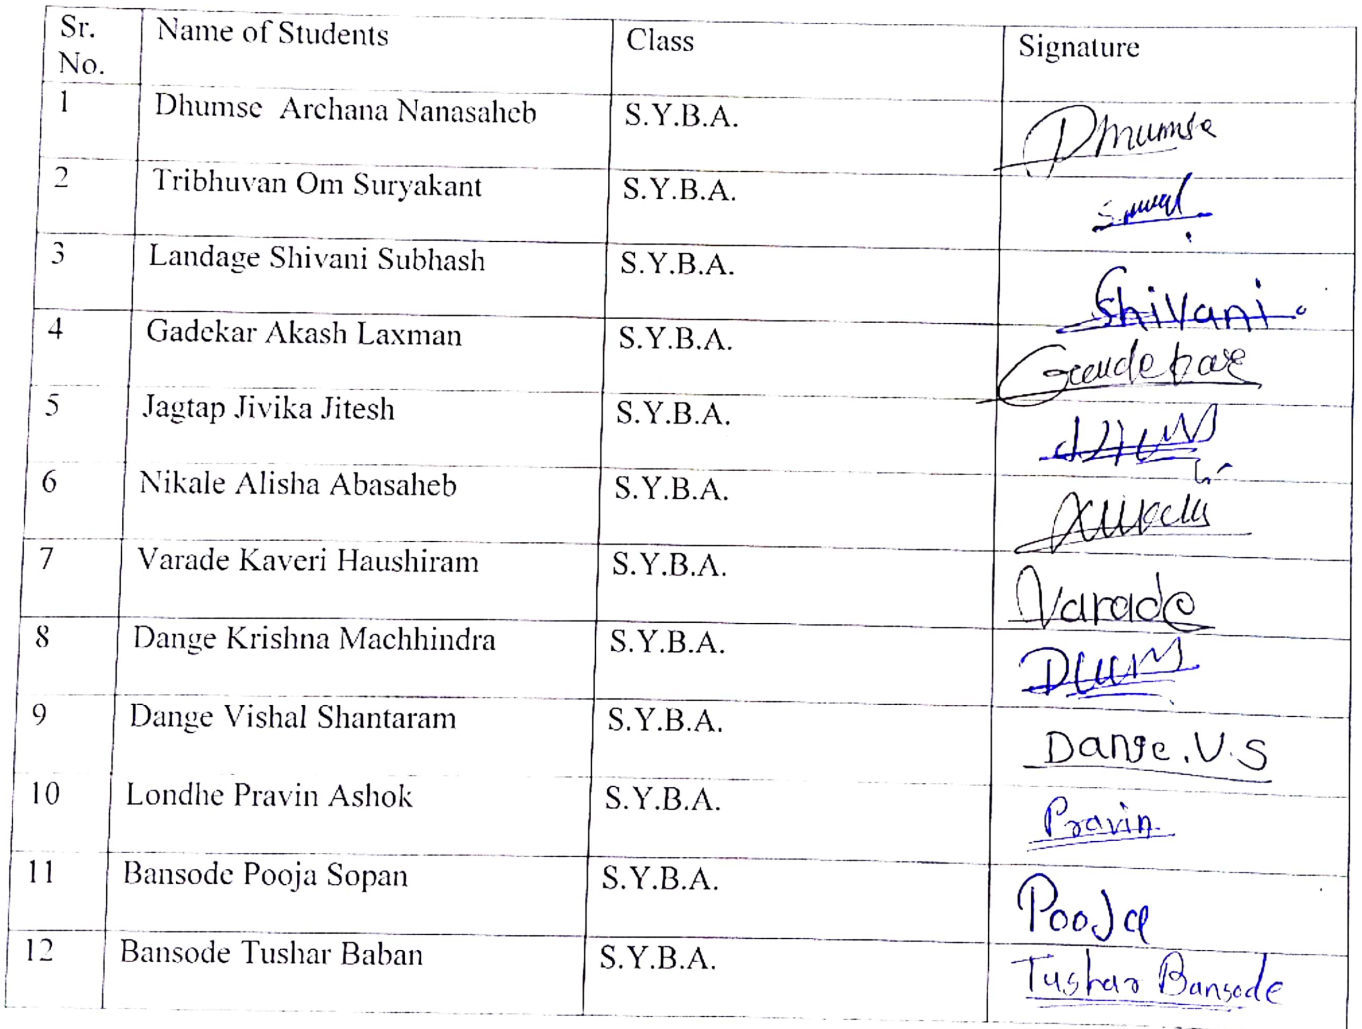 Sr. No. Name of Students Class Signature
1 Dhumse Archana Nanasaheb S.Y.B.A. Dhumse
2 Tribhuvan Om Suryakant S.Y.B.A.
3 Landage Shivani Subhash S.Y.B.A. Shivani
4 Gadekar Akash Laxman S.Y.B.A.
5 Jagtap Jivika Jitesh S.Y.B.A.
6 Nikale Alisha Abasaheb S.Y.B.A.
7 Varade Kaveri Haushiram S.Y.B.A. Varade
8 Dange Krishna Machhindra S.Y.B.A.
9 Dange Vishal Shantaram S.Y.B.A. Dange.V.S
10 Londhe Pravin Ashok S.Y.B.A. Pravin
11 Bansode Pooja Sopan S.Y.B.A. Pooja
12 Bansode Tushar Baban S.Y.B.A. Tushar Bansode